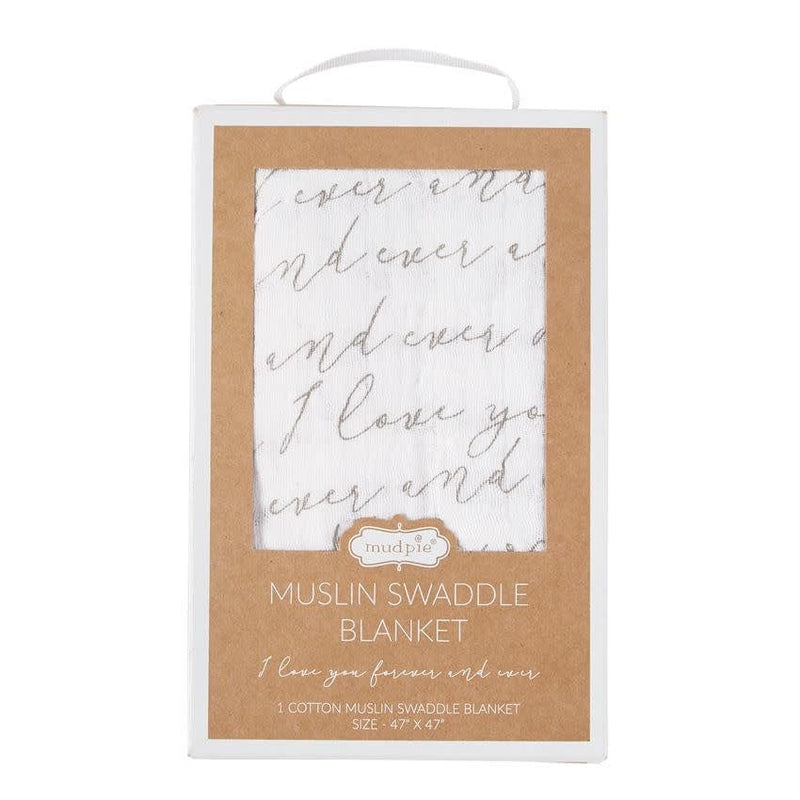 ever and
nd ever a
and ever a
I love yo
ever and
mudpie
MUSLIN SWADDLE
BLANKET
I love you forever and ever
1 COTTON MUSLIN SWADDLE BLANKET
SIZE - 47" X 47"